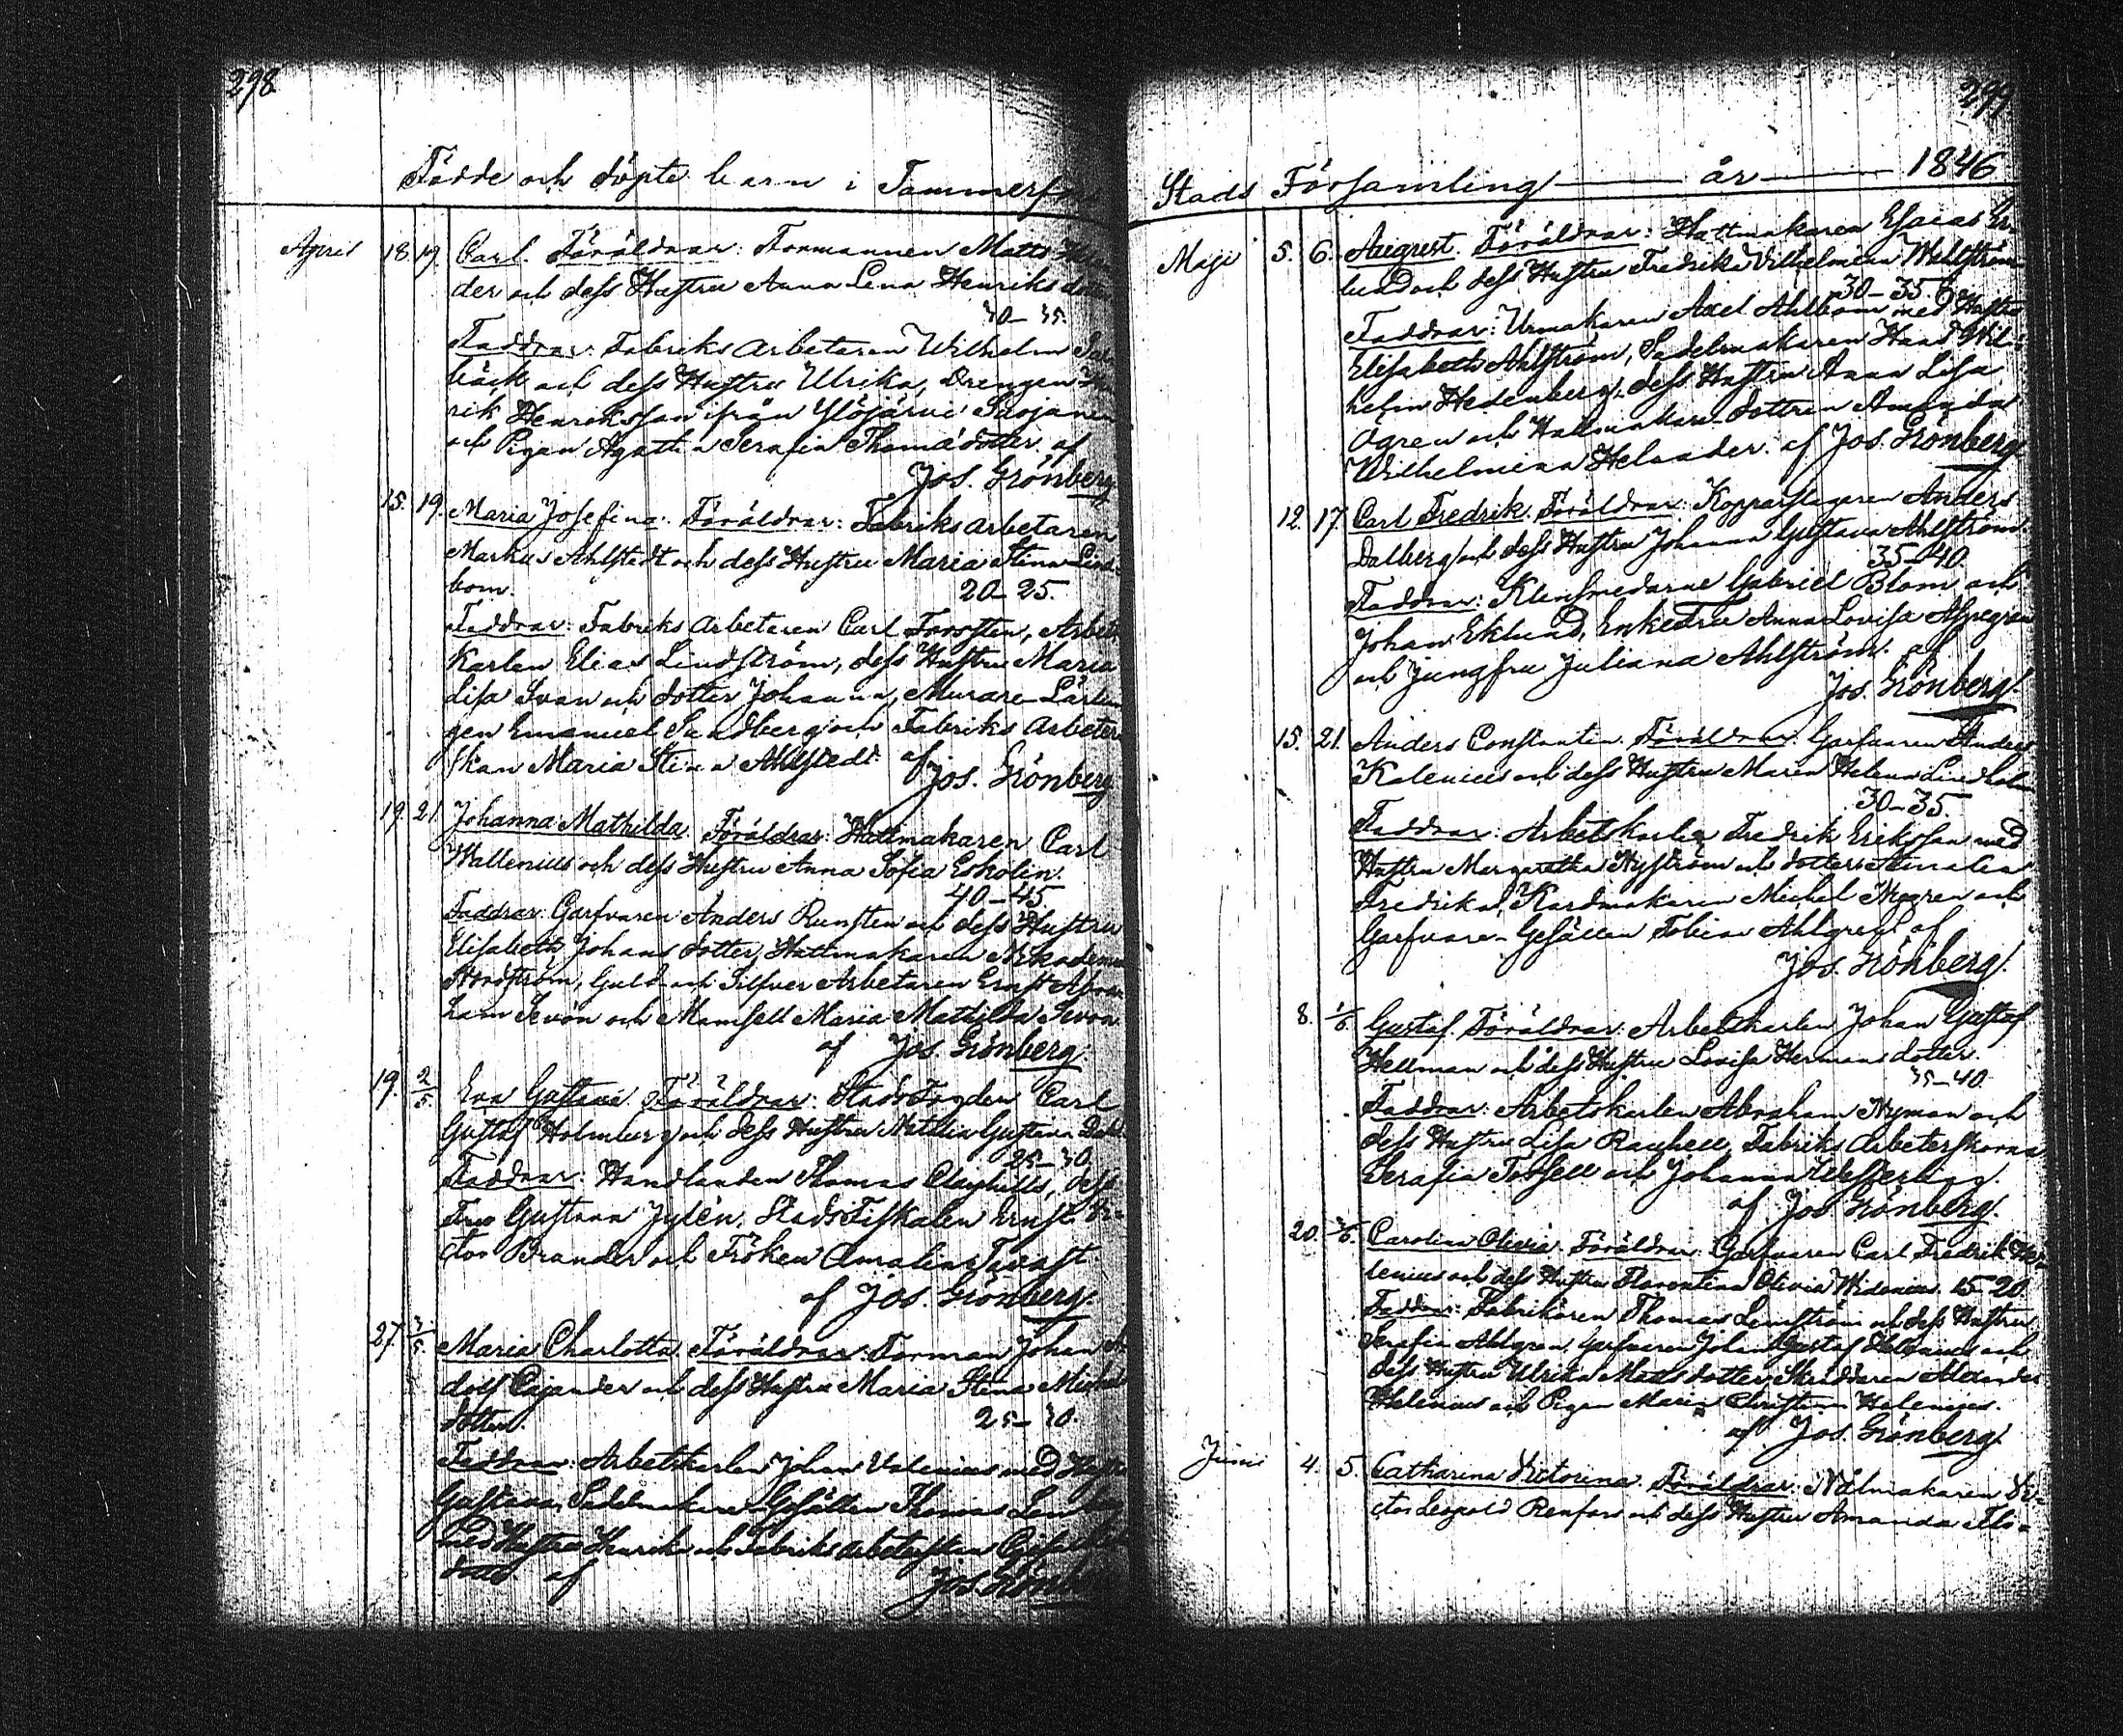 298
Födde och döpte barn i Tammerfors
April 18. 19. Carl. Föräldrar: Formannen Matts
der och dess Hustru Anna Lena Henriksdotter
30–35.
Faddrar: Fabriks arbetaren Wilhelm
bäck och dess Hustru Ulrika, Drengen
rik Henriksson ifrån Ylöjärvi
och Pigan Agatha Serafia Thomasdotter, af
Jos. Grönberg
15. 19. Maria Josefina. Föräldrar: Fabriks arbetaren
Markus Ahlstedt och dess Hustru Maria Stina Lind-
bom. 20–25.
Faddrar: Fabriks arbetaren Carl Forssten, Arbets
Karlen Elias Lindström, dess Hustru Maria
Lisa Ivan och dotter Johanna, Murare Lärlin
gen Emanuel Sandberg och Fabriks Arbeter
skan Maria Stina Ahlstedt af
Jos. Grönberg
19. 21. Johanna Mathilda. Föräldrar: Hattmakaren Carl
Wallenius och dess Hustru Anna Sofia Eskolin.
40–45.
Faddrar: Garfvaren Anders Runsten och dess Hustru
Elisabeth Johans dotter, Hattmakaren
Nordström, Guld och Silfver Arbetaren Ernst Abra-
ham Sevon och Mamsell Maria Mathilda Sevon
af Jos. Grönberg
19. 2/5 Eva Gustava. Föräldrar: StadsFogden Carl
Gustaf Holmberg och dess Hustru Natalia Gustava
25–30.
Faddrar: Handlanden Thomas Clayhills, dess
Fru Gustava Jylén, StadsFiskalen Ernst Vi-
ctor Brander och Fröken Amalina Tavast.
af Jos. Grönberg.
27. 3/5 Maria Charlotta. Föräldrar: Forman Johan A
dolf Cajander och dess Hustru Maria Stina Michels
dotter. 25–30.
Faddrar: Arbetskarlen Johan Valenius med Hustru
Gustava, Sadelmakare Gesällen Thomas
med Hustru Henrika och Fabriks arbeterskan
af Jos. Grönberg
299
Stads Församling år 1846
Maji 5. 6. August. Föräldrar: Hattmakaren Esaias Er-
lund och dess Hustru Fredrika Vilhelmina Wahlström
30–35.
Faddrar: Urmakaren Axel Ahlbom med Hustru
Elisabeth Ahlström, Sadelmakaren Hans Wil-
helm Hedenberg, dess Hustru Anna Lisa
Ögren och Hattmakare dottren Amanda
Wilhelmina Helander. af Jos. Grönberg.
12. 17. Carl Fredrik. Föräldrar: Kopparslagaren Anders
Dalberg och dess Hustru Johanna Gustava Ahlström.
35–40.
Faddrar: Klensmedarne Gabriel Blom och
Johan Eklund, EnkeFru Anna Lovisa Aspegren
och Jungfru Juliana Ahlström. af
Jos. Grönberg.
15. 21. Anders Constantin. Föräldrar: Garfvaren Anders
Kalenius och dess Hustru Maria Helena Lindholm
30–35.
Faddrar: Arbetskarlen Fredrik Eriksson med
Hustru Margaretha Nyström och dotter Amalia
Fredrika, Kardmakaren Michel Nygren och
Garfvare-Gesällen Tobias Ahlgren af
Jos. Grönberg.
8. 1/6 Gustaf. Föräldrar: Arbetskarlen Johan Gustaf
Hellman och dess Hustru Lovisa Hermansdotter.
35–40.
Faddrar: Arbetskarlen Abraham Nyman och
dess Hustru Lisa Rauhell, Fabriks Arbeterskorna
Serafia Forssell och Johanna Wesserling.
af Jos. Grönberg.
20. Carolina Olivia. Föräldrar: Garfvaren Carl Fredrik He-
lenius och dess Hustru Florentina Olivia Widenius. 15–20.
Faddrar: Fabrikören Thomas Lemström och dess Hustru
Serafia Ahlgren, Garfvaren Johan Gustaf Helenius och
dess Hustru Ulrika Matsdotter, Skräddaren Alexander
Helenius och Pigan Maria Christina Helenius.
af Jos. Grönberg.
Junii 4. 5. Catharina Victorina. Föräldrar: Nålmakaren Vi-
ctor Leopold Renfors och dess Hustru Amanda Flo-